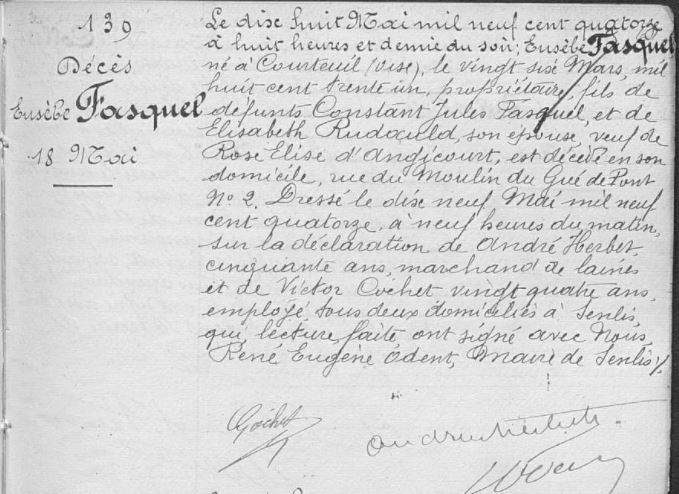 139
Décès
Eusèbe Fasquel
18 Mai
Le dix huit Mai mil neuf cent quatorze
à huit heures et demie du soir; Eusèbe Fasquel
né à Courteuil (Oise), le vingt six Mars, mil
huit cent trente un, propriétaire, fils de
défunts Constant Jules Fasquel, et de
Elisabeth Rudauld, son épouse, veuf de
Rose Elise d'Angicourt, est décédé en son
domicile, rue du Moulin du Gué de Pont
No 2. Dressé le dix neuf Mai mil neuf
cent quatorze, à neuf heures du matin,
sur la déclaration de André Herbet,
cinquante ans, marchand de laines
et de Victor Cochet, vingt quatre ans,
employé, tous deux domiciliés à Senlis,
qui, lecture faite, ont signé avec Nous,
René Eugène Odent, Maire de Senlis /.
Cochet